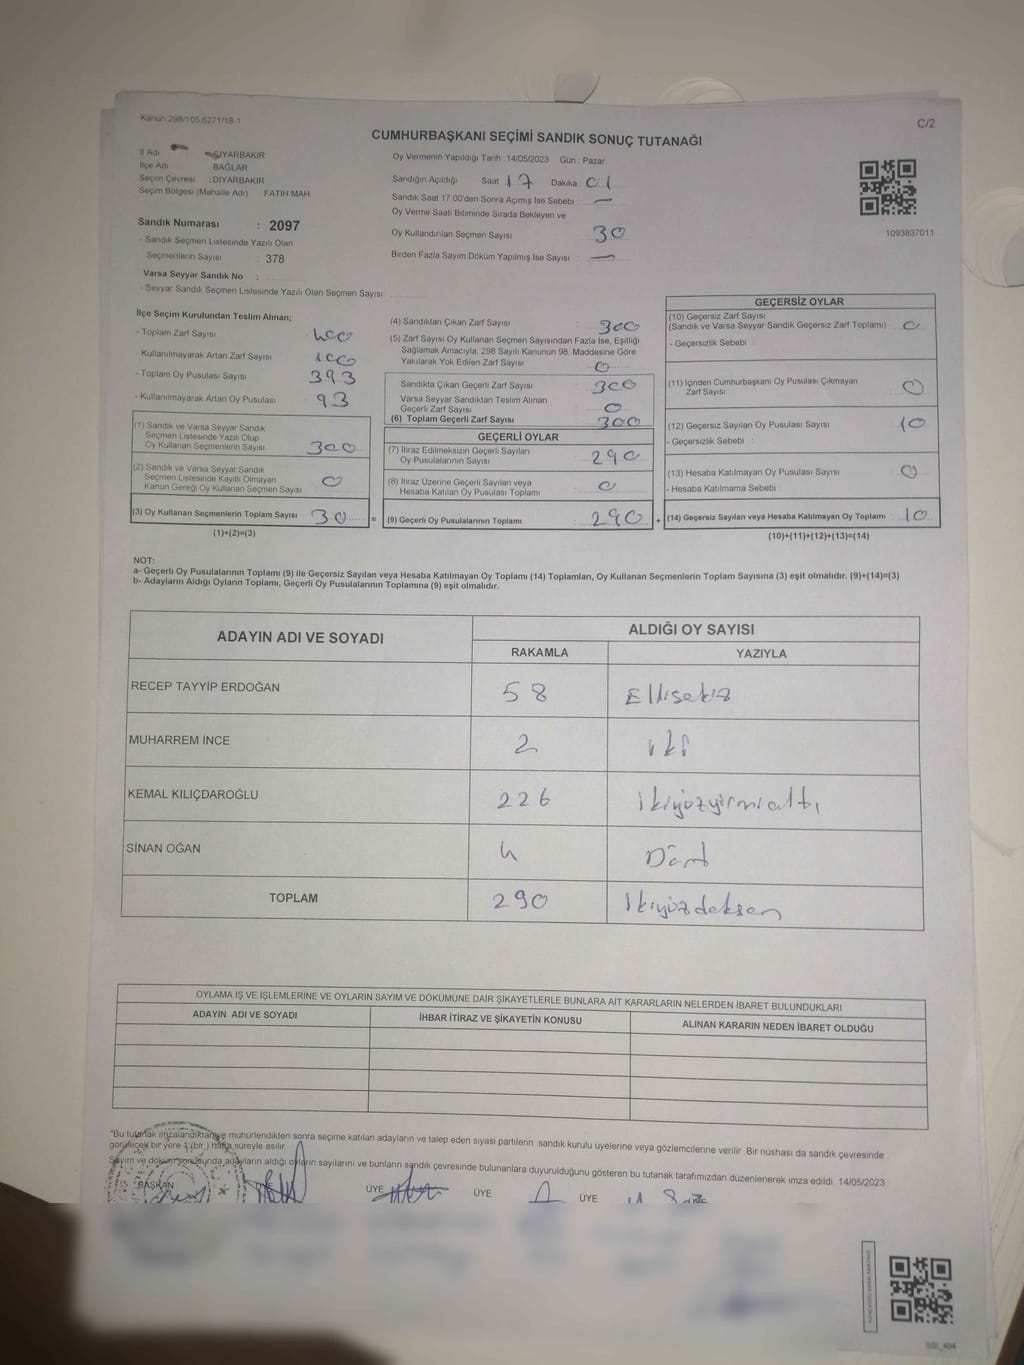 Kanun:298/105,6271/18-1
C/2
CUMHURBAŞKANI SEÇİMİ SANDIK SONUÇ TUTANAĞI
İl Adı
İlçe Adı BAĞLAR
Seçim Çevresi : DİYARBAKIR
Seçim Bölgesi (Mahalle Adı) FATİH MAH.
Sandık Numarası : 2097
- Sandık Seçmen Listesinde Yazılı Olan
Seçmenlerin Sayısı : 378
Varsa Seyyar Sandık No :
- Seyyar Sandık Seçmen Listesinde Yazılı Olan Seçmen Sayısı
Oy Vermenin Yapıldığı Tarih :14/05/2023 Gün : Pazar
Sandığın Açıldığı Saat 17 Dakika 01
Sandık Saat 17:00'den Sonra Açımış İse Sebebi : —
Oy Verme Saati Bitiminde Sırada Bekleyen ve
Oy Kullandırılan Seçmen Sayısı 30
Birden Fazla Sayım Döküm Yapılmış İse Sayısı : —
1093837011
İlçe Seçim Kurulundan Teslim Alınan;
- Toplam Zarf Sayısı 400
- Kullanılmayarak Artan Zarf Sayısı 100
- Toplam Oy Pusulası Sayısı 393
- Kullanılmayarak Artan Oy Pusulası 93
(1) Sandık ve Varsa Seyyar Sandık
Seçmen Listesinde Yazılı Olup
Oy Kullanan Seçmenlerin Sayısı 300
(2) Sandık ve Varsa Seyyar Sandık
Seçmen Listesinde Kayıtlı Olmayan
Kanun Gereği Oy Kullanan Seçmen Sayısı 0
(3) Oy Kullanan Seçmenlerin Toplam Sayısı 30 =
(1)+(2)=(3)
(4) Sandıktan Çıkan Zarf Sayısı 300
(5) Zarf Sayısı Oy Kullanan Seçmen Sayısından Fazla İse, Eşitliği
Sağlamak Amacıyla; 298 Sayılı Kanunun 98. Maddesine Göre
Yakılarak Yok Edilen Zarf Sayısı 0
Sandıkta Çıkan Geçerli Zarf Sayısı 300
Varsa Seyyar Sandıktan Teslim Alınan
Geçerli Zarf Sayısı 0
(6) Toplam Geçerli Zarf Sayısı 300
GEÇERLİ OYLAR
(7) İtiraz Edilmeksizin Geçerli Sayılan
Oy Pusulalarının Sayısı 290
(8) İtiraz Üzerine Geçerli Sayılan veya
Hesaba Katılan Oy Pusulası Toplamı 0
(9) Geçerli Oy Pusulalarının Toplamı 290 +
GEÇERSİZ OYLAR
(10) Geçersiz Zarf Sayısı
(Sandık ve Varsa Seyyar Sandık Geçersiz Zarf Toplamı) 0
- Geçersizlik Sebebi
(11) İçinden Cumhurbaşkanı Oy Pusulası Çıkmayan
Zarf Sayısı 0
(12) Geçersiz Sayılan Oy Pusulası Sayısı 10
- Geçersizlik Sebebi
(13) Hesaba Katılmayan Oy Pusulası Sayısı 0
- Hesaba Katılmama Sebebi
(14) Geçersiz Sayılan veya Hesaba Katılmayan Oy Toplamı 10
(10)+(11)+(12)+(13)=(14)
NOT:
a- Geçerli Oy Pusulalarının Toplamı (9) ile Geçersiz Sayılan veya Hesaba Katılmayan Oy Toplamı (14) Toplamları, Oy Kullanan Seçmenlerin Toplam Sayısına (3) eşit olmalıdır. (9)+(14)=(3)
b- Adayların Aldığı Oyların Toplamı, Geçerli Oy Pusulalarının Toplamına (9) eşit olmalıdır.
ADAYIN ADI VE SOYADI
ALDIĞI OY SAYISI
RAKAMLA YAZIYLA
RECEP TAYYİP ERDOĞAN 58 Ellisekiz
MUHARREM İNCE 2 iki
KEMAL KILIÇDAROĞLU 226 ikiyüzyirmialtı
SİNAN OĞAN 4 Dört
TOPLAM 290 ikiyüzdoksan
OYLAMA İŞ VE İŞLEMLERİNE VE OYLARIN SAYIM VE DÖKÜMÜNE DAİR ŞİKAYETLERLE BUNLARA AİT KARARLARIN NELERDEN İBARET BULUNDUKLARI
ADAYIN ADI VE SOYADI İHBAR İTİRAZ VE ŞİKAYETİN KONUSU ALINAN KARARIN NEDEN İBARET OLDUĞU
*Bu tutanak imzalandıktan ve mühürlendikten sonra seçime katılan adayların ve talep eden siyasi partilerin sandık kurulu üyelerine veya gözlemcilerine verilir .Bir nüshası da sandık çevresinde
görülecek bir yere 1 (bir ) hafta süreyle asılır
Sayım ve döküm sonusunda adayların aldığı oyların sayılarını ve bunların sandık çevresinde bulunanlara duyurulduğunu gösteren bu tutanak tarafımızdan düzenlenerek imza edildi. 14/05/2023
BAŞKAN ÜYE ÜYE ÜYE